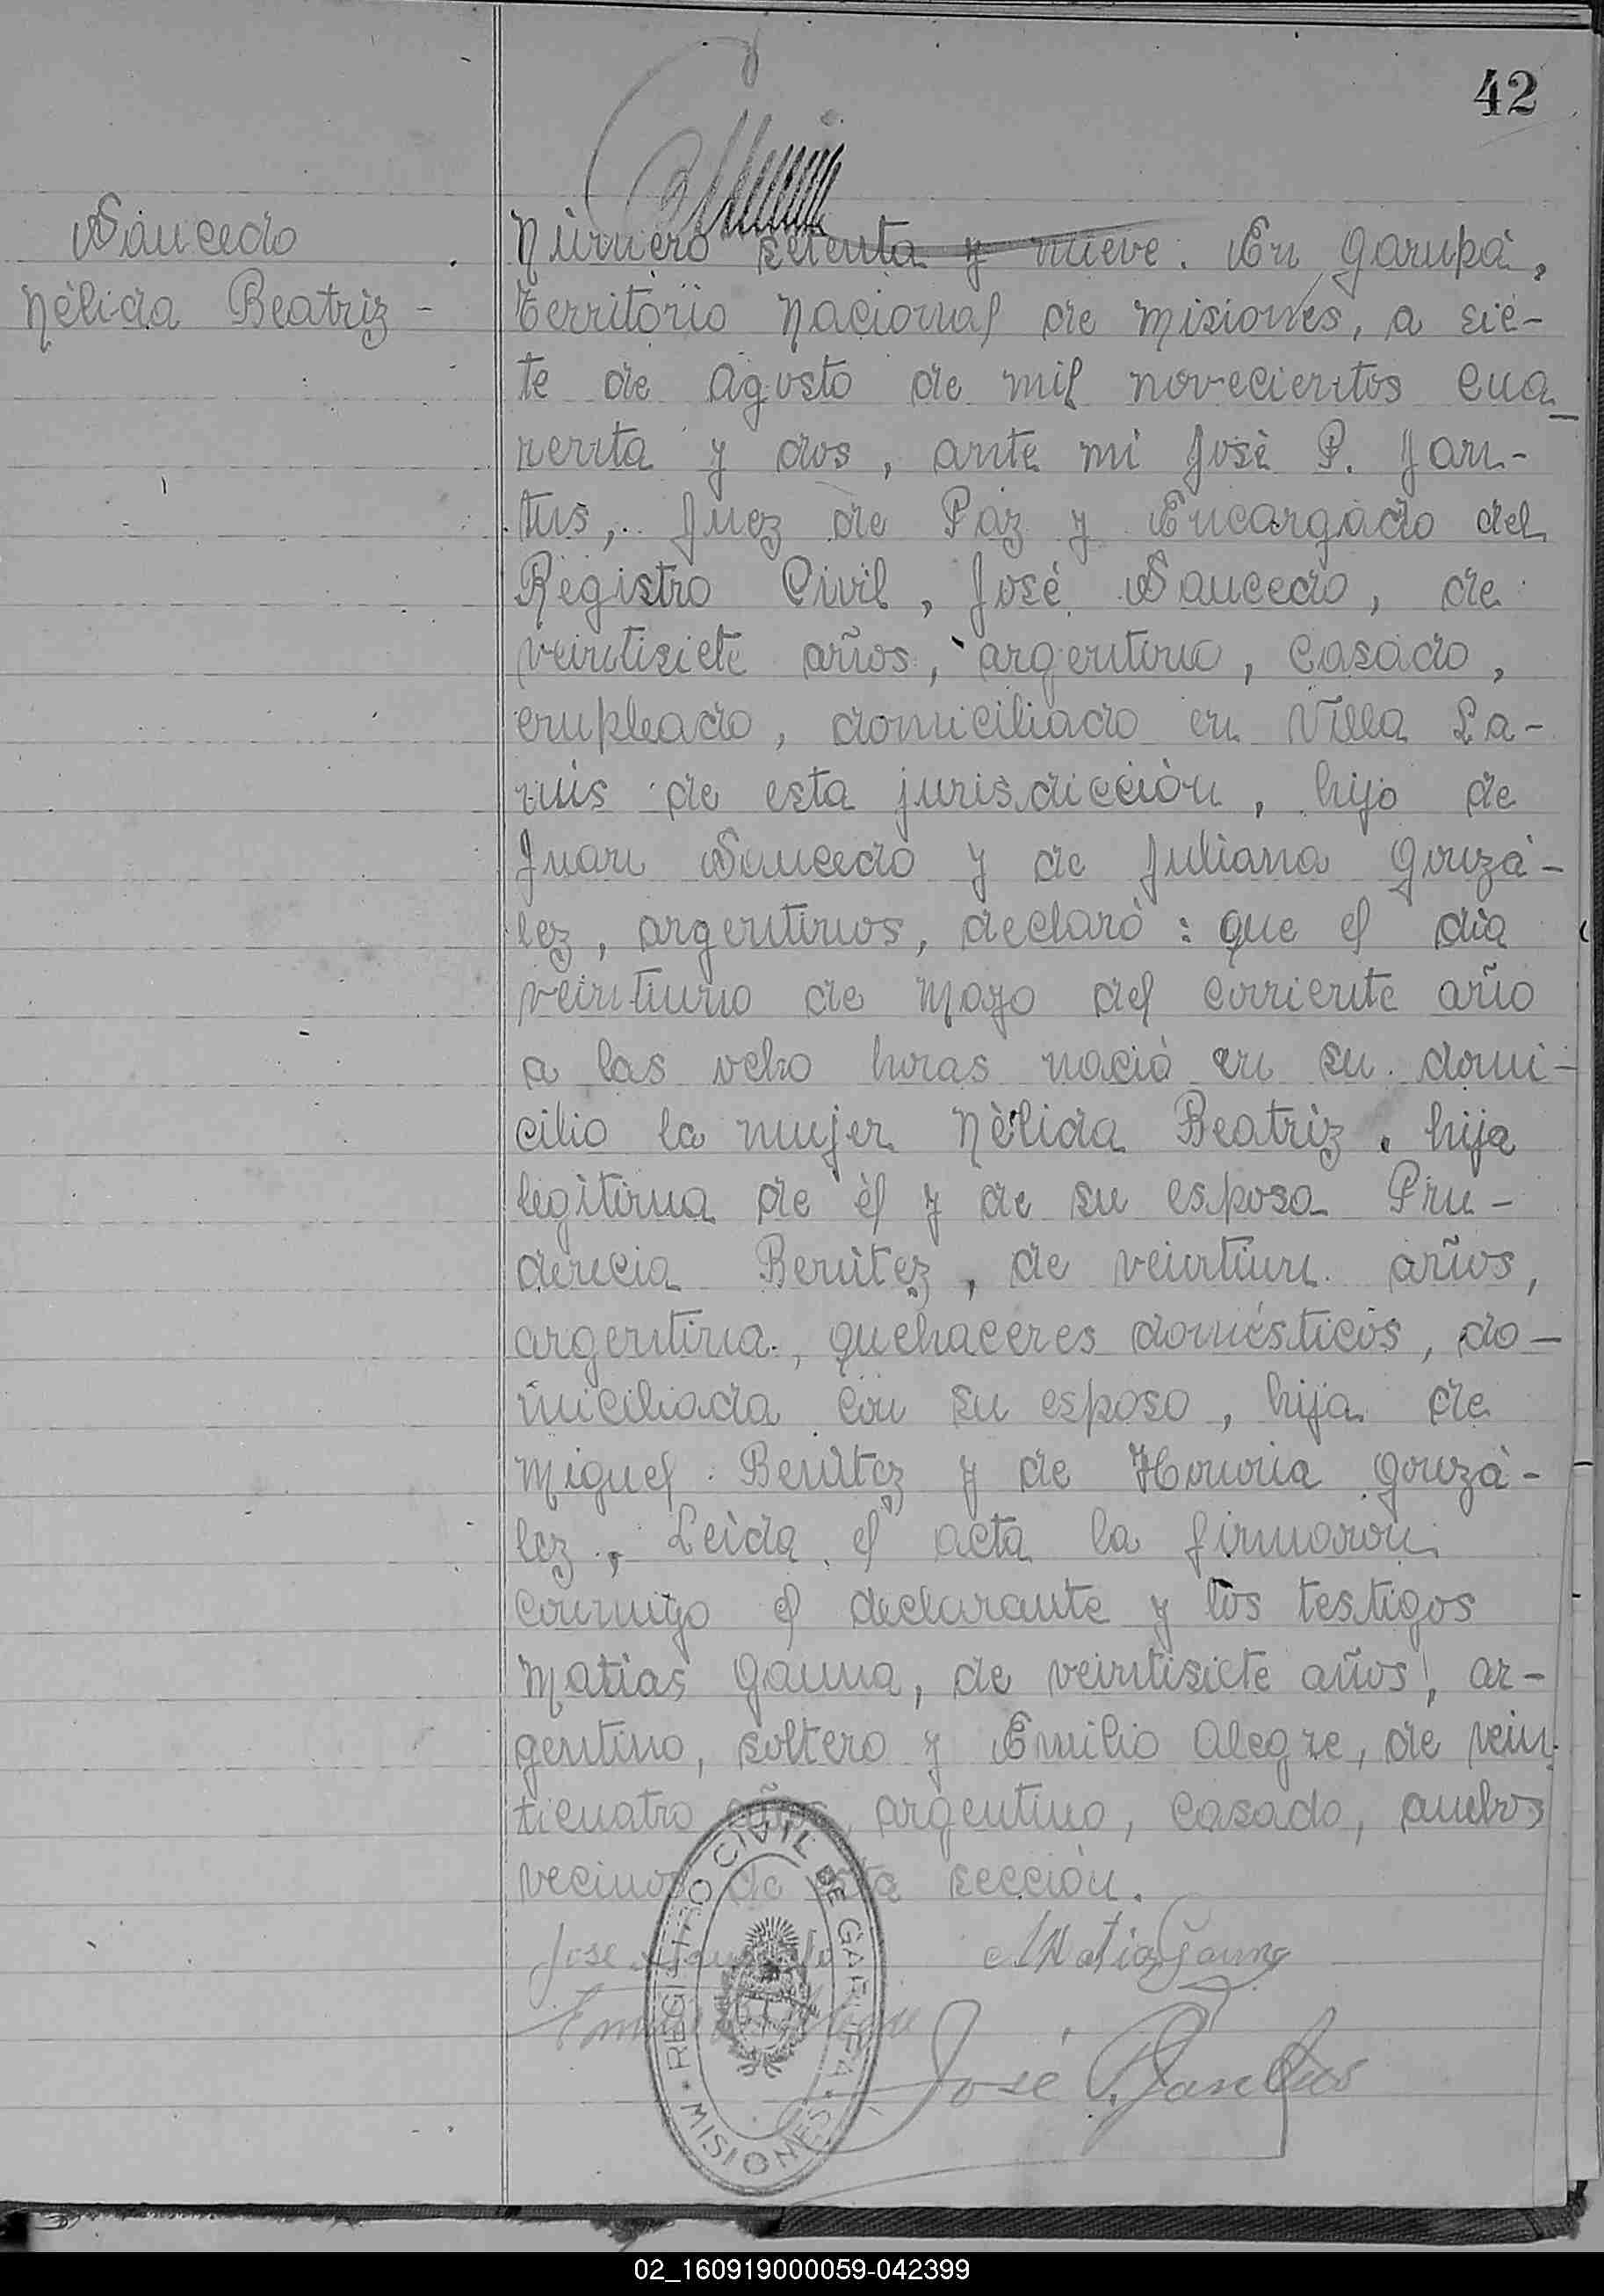 42
Saucedo
Nèlida Beatriz -
Nùmero setenta y nueve. En Garupà,
territorio Nacional de Misiones, a sie-
te de Agosto de mil novecientos cua_
renta y dos, ante mi Josè P. Jan-
tus, Juez de Paz y Encargado del
Registro Civil, José Saucedo, de
veintisiete años, argentino, casado,
empleado, domiciliado en Villa La-
nùs de esta jurisdicciòn, hijo de
Juan Saucedo y de Juliana Gonzà-
lez, argentinos, declarò: que el dìa
veintiuno de Mayo del corriente año
a las ocho horas naciò en su domi-
cilio la mujer Nèlida Beatrìz, hija
legìtima de èl y de su esposa Pru-
dencia Benìtez, de veintiun años,
argentina, quehaceres domésticos, do-
miciliada con su esposo, hija de
Miguel Benìtez y de Honoria Gonzà-
lez, Leìda el acta la firmaron
conmigo el declarante y los testigos
Matìas Gauna, de veintisiete años, ar-
gentino, soltero y Emilio Alegre, de vein
ticuatro años, argentino, casado, ambos
vecinos de esta secciòn.
Jose Saucedo Matias Gauna
Emilio Alegre
José P. Jantus
REGISTRO CIVIL DE GARUPA
MISIONES
02_160919000059-042399